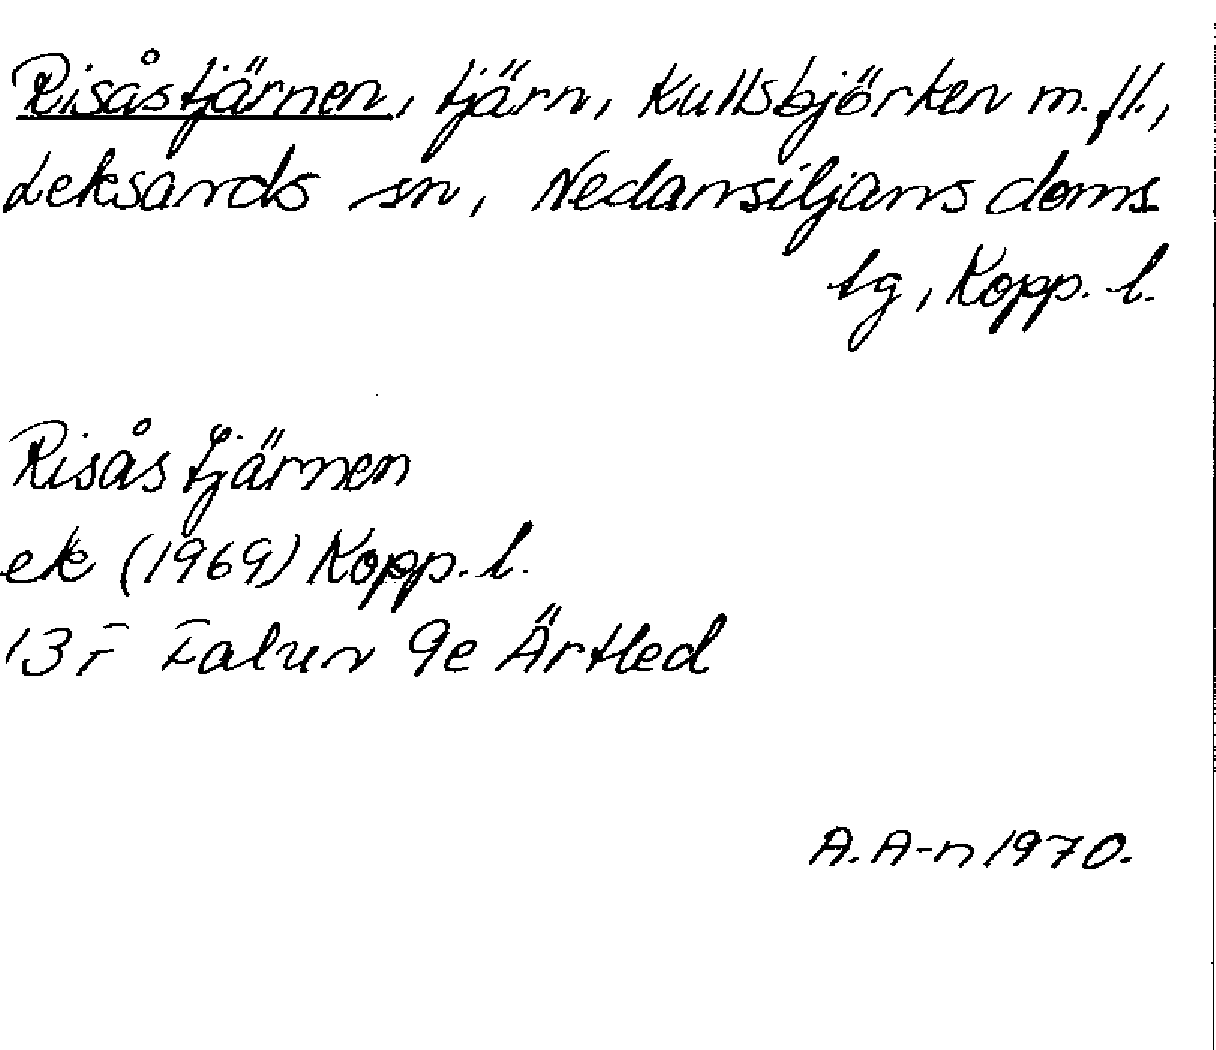 Risåstjärnen, tjärn, Kullsbjörken m.fl.,
Leksands sn, Nedansiljans doms
tg, Kopp. l.
Risåstjärnen
ek (1969) Kopp. l.
13 F Falun 9e Ärtled
A. A-n 1970.